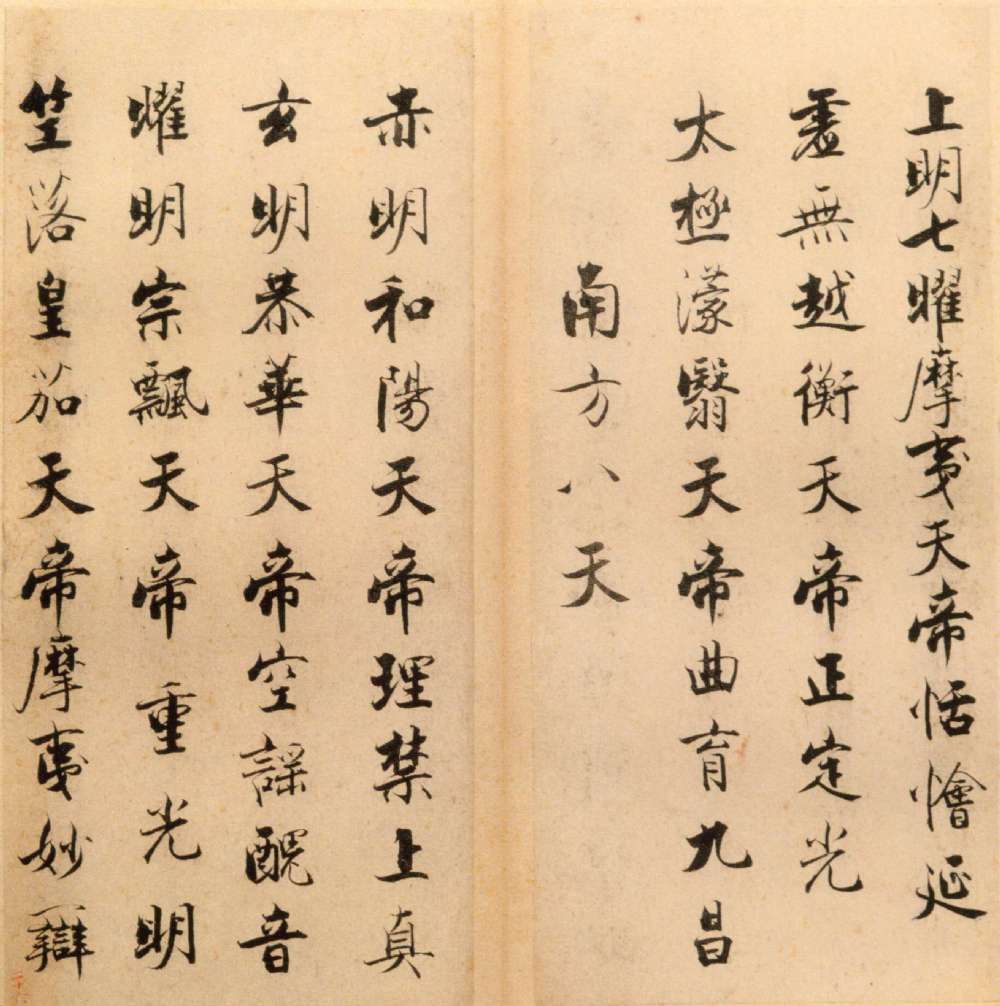 上明七曜摩夷天帝恬憺延
虛無越衡天帝正定光
太極濛翳天帝曲育九昌
南方八天
赤明和陽天帝理禁上真
玄明恭華天帝空謡醜音
耀明宗飄天帝重光明
竺落皇笳天帝摩夷妙辯